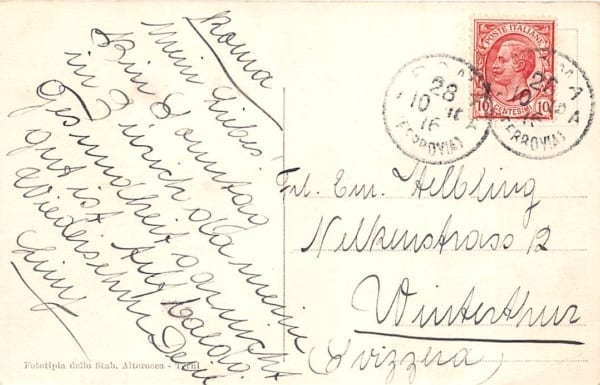 Roma
Mein Liebes!
Bin Sonntag
in Zürich da meine
Gesundheit gar nicht
gut ist. Auf baldi.
Wiedersehn Dein
POSTE ITALIANE
10 CENTESIMI 10
ROMA
28
10 16
16
(FERROVIA)
ROMA
(FERROVIA)
Frl. Em. Helbling
Nelkenstrass 12
Winterthur
(Svizzera)
Fototipia dello Stab. Alterocca - Terni